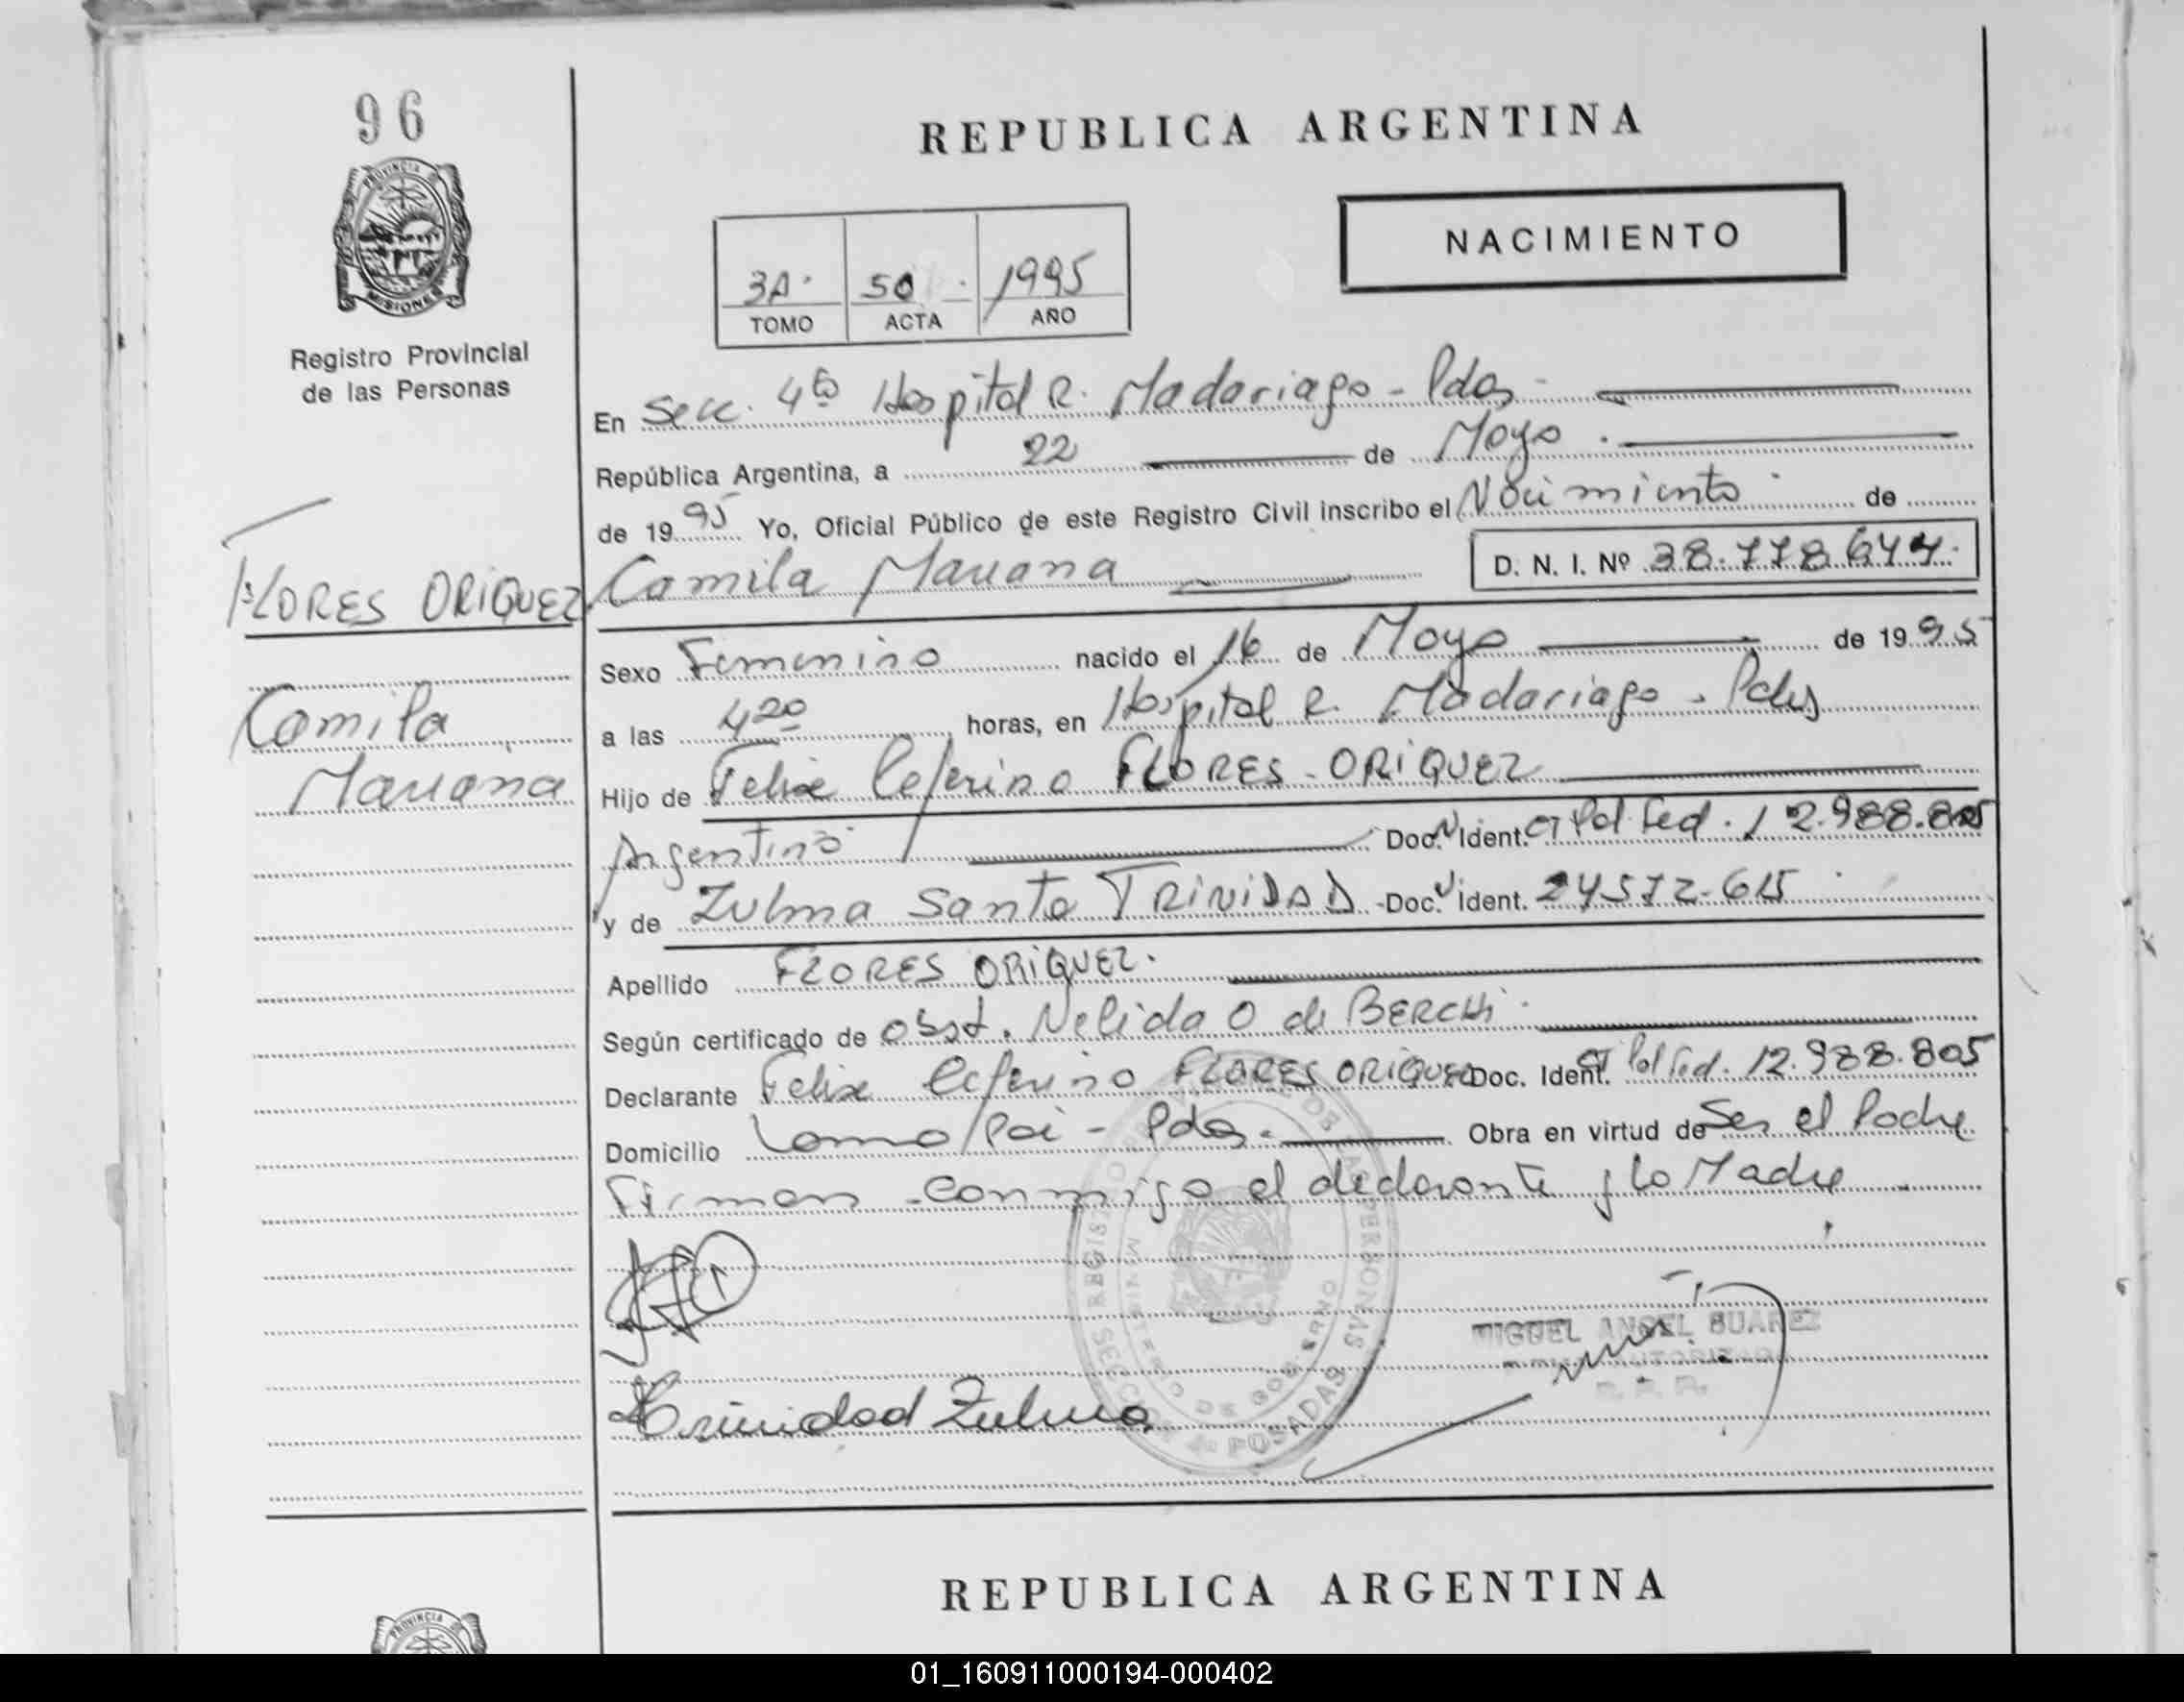 96
PROVINCIA D
MISIONES
Registro Provincial
de las Personas
REPUBLICA ARGENTINA
NACIMIENTO
3A. 50 1995
TOMO ACTA AÑO
En Secc. 4ta Hospital R. Madariaga - Pdas -
República Argentina, a 22 de Mayo.
de 1995 Yo, Oficial Público de este Registro Civil inscribo el Nacimiento de
FLORES ORIQUEZ Camila Mariana D. N. I. Nº 38.778.644.
Camila
Mariana
Sexo Femenino nacido el 16 de Mayo de 1995
a las 4 20 horas, en Hospital R. Madariaga - Pdas
Hijo de Felix Ceferino FLORES - ORIQUEZ
Argentino Doc. N Ident. CI Pol Fed. 12.988.805
y de Zulma Santa TRINIDAD Doc. N Ident. 24572-615
Apellido FLORES ORIQUEZ.
Según certificado de obst. Nelida O de BERCHI.
Declarante Felix Ceferino FLORES ORIQUEZ Doc. Ident. CI Pol Fed. 12.988.805
Domicilio Pdas. Obra en virtud de Ser el Padre
Firman conmigo el declarante y la Madre
MIGUEL ANGEL SUAREZ
AUTORIZADO
R. P. P.
Trinidad Zulma
REGISTRO DE LAS PERSONAS
MINISTERIO DE GOBIERNO
SECCION 4a POSADAS
REPUBLICA ARGENTINA
PROVINCIA
01_160911000194-000402